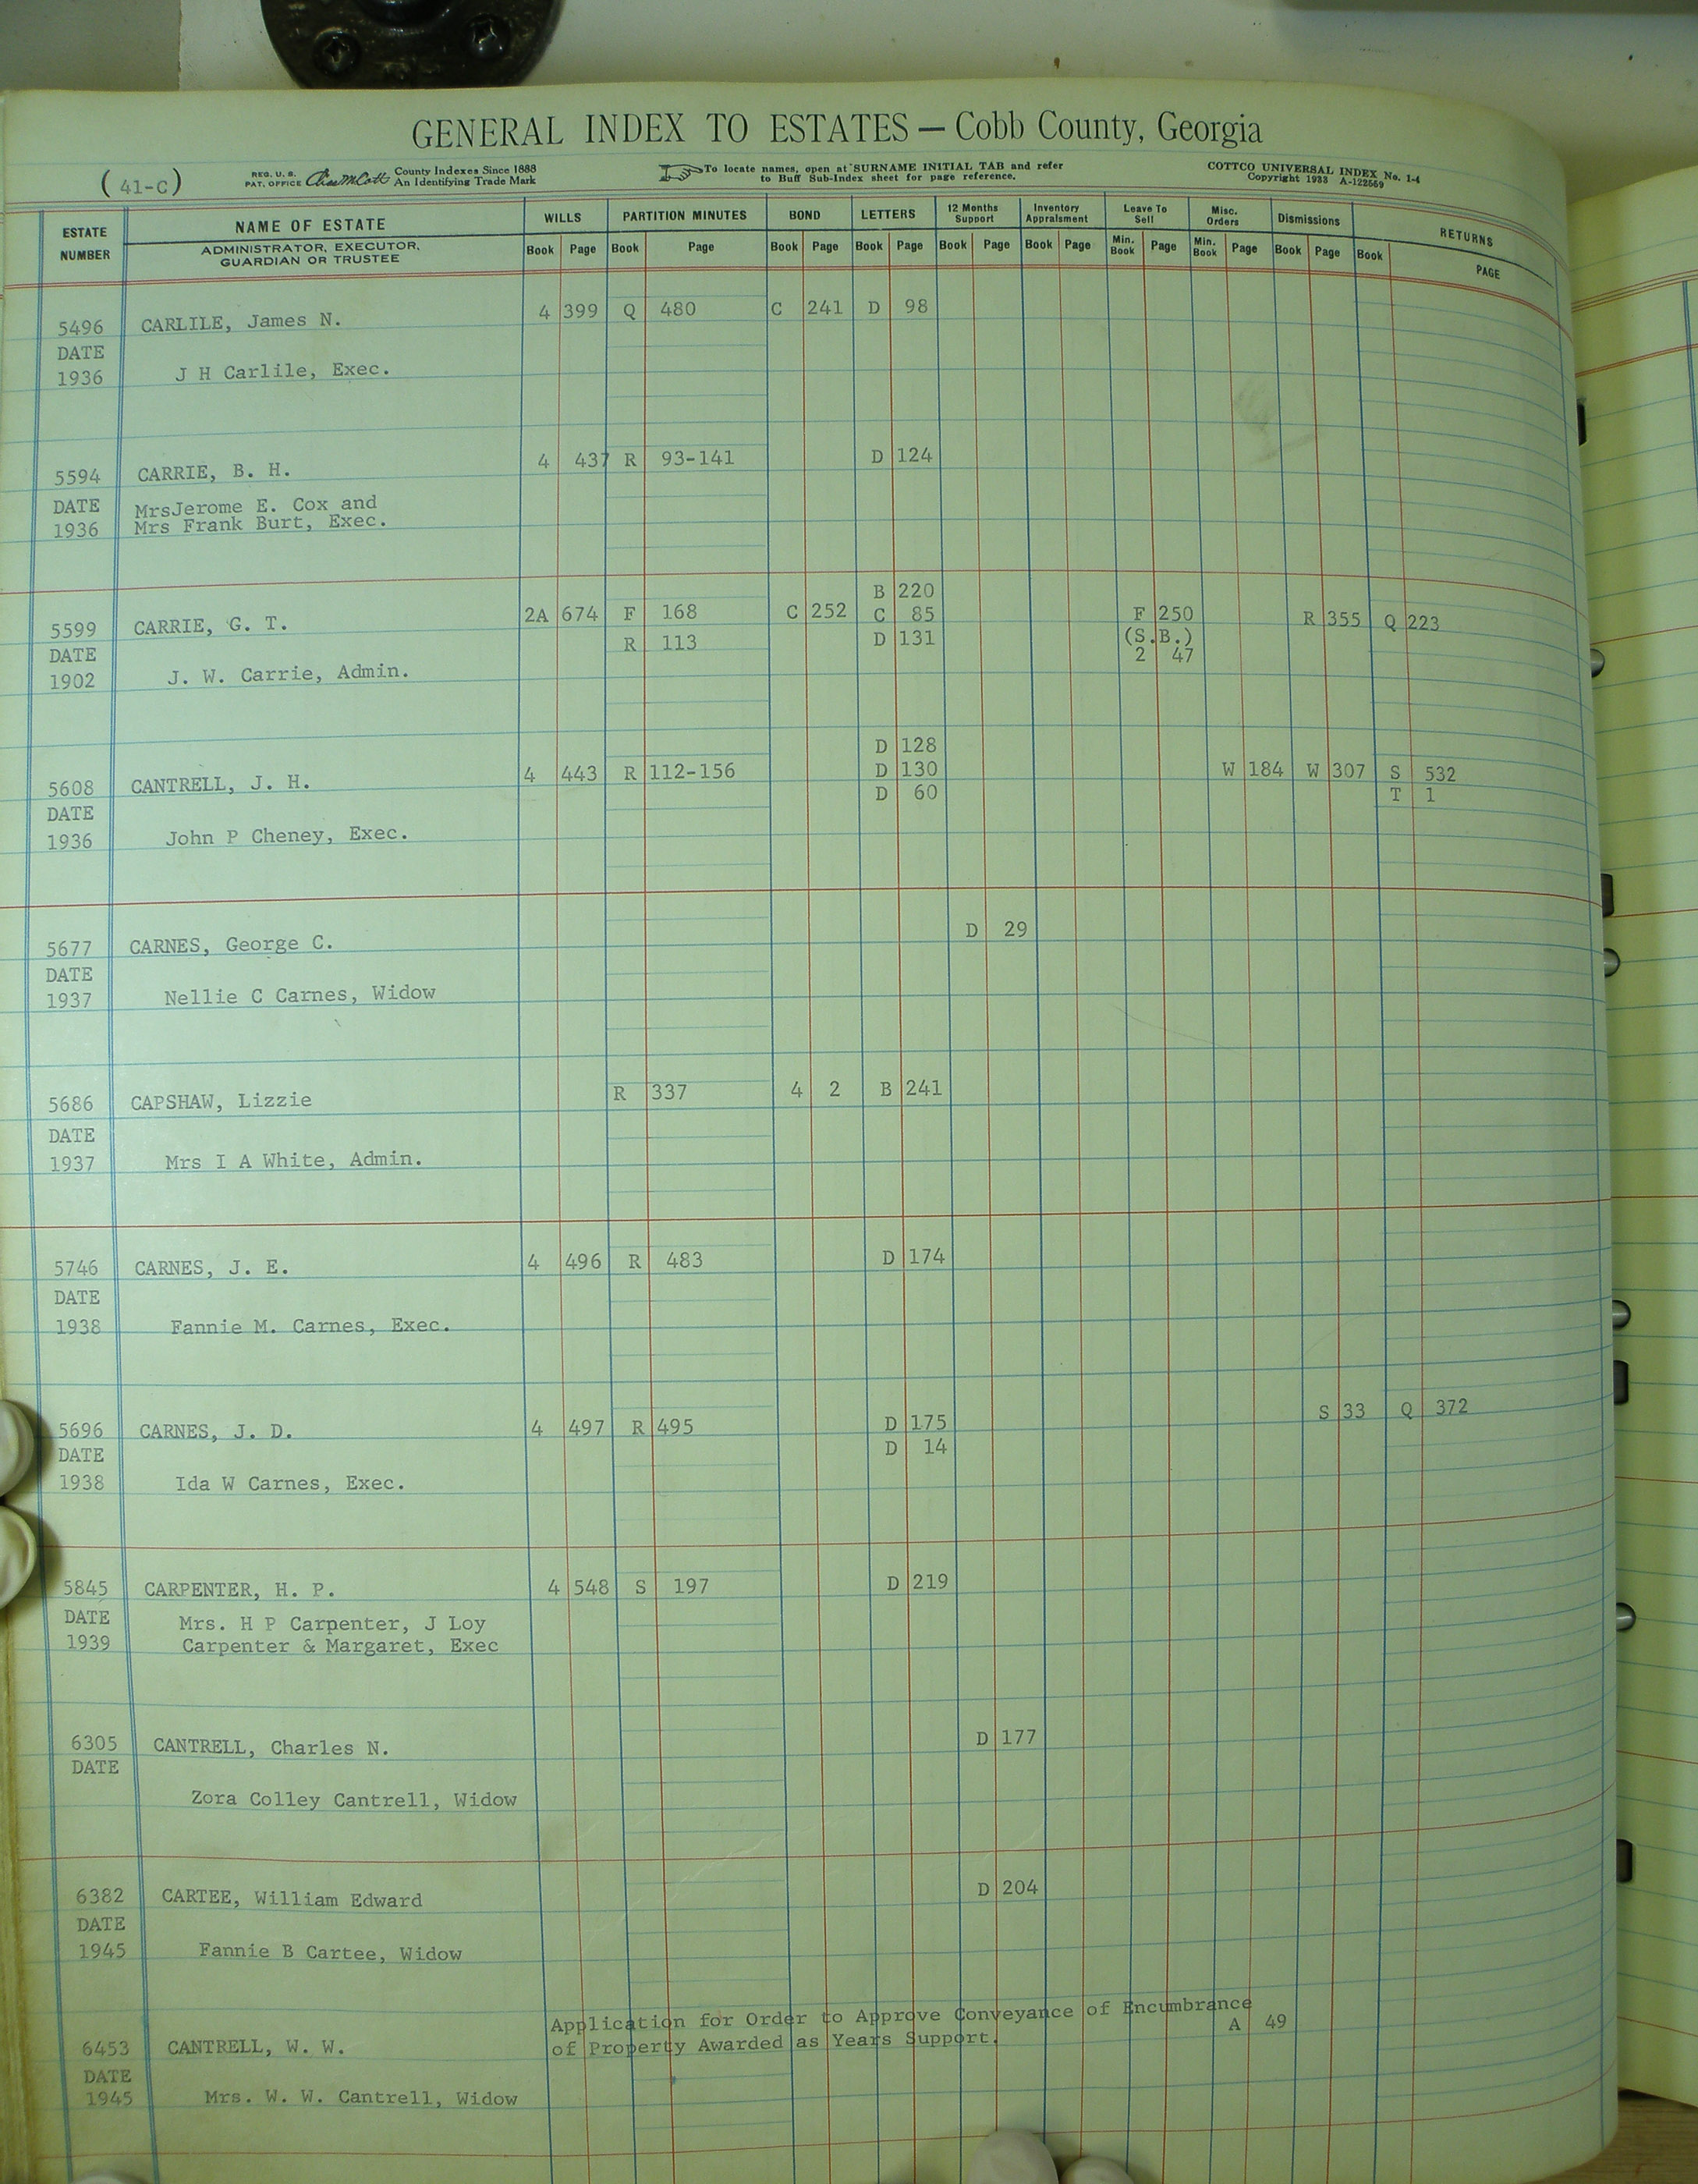 GENERAL INDEX TO ESTATES — Cobb County, Georgia
(41-C) REG. U. S. PAT. OFFICE County Indexes Since 1888 An Identifying Trade Mark To locate names, open at SURNAME INITIAL TAB and refer to Buff Sub-Index sheet for page reference. COTTCO UNIVERSAL INDEX No. 1-4 Copyright 1933 A-122569
ESTATE NUMBER NAME OF ESTATE WILLS PARTITION MINUTES BOND LETTERS 12 Months Support Inventory Appraisment Leave To Sell Misc. Orders Dismissions RETURNS
ADMINISTRATOR, EXECUTOR, GUARDIAN OR TRUSTEE Book Page Book Page Book Page Book Page Book Page Book Page Min. Book Page Min. Book Page Book Page Book PAGE
5496 CARLILE, James N. 4 399 Q 480 C 241 D 98
DATE
1936 J H Carlile, Exec.
5594 CARRIE, B. H. 4 437 R 93-141 D 124
DATE MrsJerome E. Cox and
1936 Mrs Frank Burt, Exec.
B 220
5599 CARRIE, G. T. 2A 674 F 168 C 252 C 85 F 250 R 355 Q 223
DATE R 113 D 131 (S.B.)
2 47
1902 J. W. Carrie, Admin.
D 128
5608 CANTRELL, J. H. 4 443 R 112-156 D 130 W 184 W 307 S 532
DATE D 60 T 1
1936 John P Cheney, Exec.
5677 CARNES, George C. D 29
DATE
1937 Nellie C Carnes, Widow
5686 CAPSHAW, Lizzie R 337 4 2 B 241
DATE
1937 Mrs I A White, Admin.
5746 CARNES, J. E. 4 496 R 483 D 174
DATE
1938 Fannie M. Carnes, Exec.
5696 CARNES, J. D. 4 497 R 495 D 175 S 33 Q 372
DATE D 14
1938 Ida W Carnes, Exec.
5845 CARPENTER, H. P. 4 548 S 197 D 219
DATE Mrs. H P Carpenter, J Loy
1939 Carpenter & Margaret, Exec
6305 CANTRELL, Charles N. D 177
DATE
Zora Colley Cantrell, Widow
6382 CARTEE, William Edward D 204
DATE
1945 Fannie B Cartee, Widow
Application for Order to Approve Conveyance of Encumbrance
6453 CANTRELL, W. W. of Property Awarded as Years Support. A 49
DATE
1945 Mrs. W. W. Cantrell, Widow